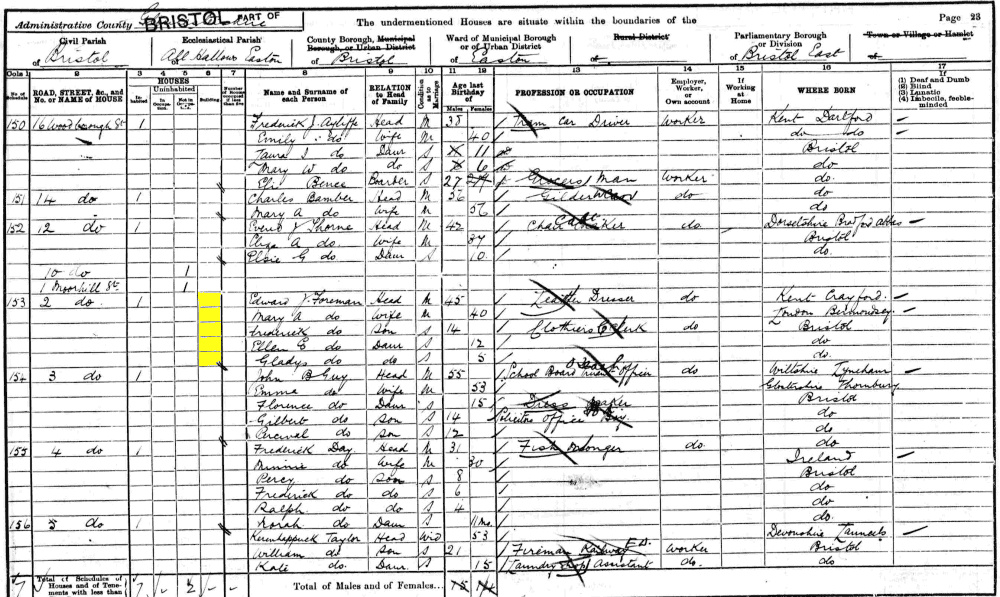 Administrative County BRISTOL PART OF The undermentioned Houses are situate within the boundaries of the Page 23
Civil Parish Ecclesiastical Parish County Borough, Municipal Borough, or Urban District Ward of Municipal Borough or of Urban District Rural District Parliamentary Borough or Division Town or Village or Hamlet
of Bristol of All Hallows Easton of Bristol of Easton of of Bristol East of
Cols 1 2 3 4 5 6 7 8 9 10 11 12 13 14 15 16 17
No. of Schedule ROAD, STREET, &c., and No. or NAME of HOUSE HOUSES Inhabited Uninhabited In Occupation Not in Occupation Building Number of Rooms occupied if less than five Name and Surname of each Person RELATION to Head of Family Condition as to Marriage Age last Birthday of Males Females PROFESSION OR OCCUPATION Employer, Worker, or Own account If Working at Home WHERE BORN If (1) Deaf and Dumb (2) Blind (3) Lunatic (4) Imbecile, feeble-minded
150 16 Woodborough St 1 Frederick J. Head M 38 Tram Car Driver Worker Kent Dartford
Emily do Wife M 40 do do
Laura J do Daur S 11 Bristol
Mary W do do S 6 do
Eli Bence Boarder S 27 Grocers Man Worker do
151 14 do 1 Charles Bamber Head M 56 Gilder do do
Mary A do Wife M 56 do
152 12 do 1 J Thorne Head M 42 Chair Maker do Dorsetshire Bradford Abbas
Eliza A do Wife M 37 Bristol
Elsie G do Daur S 10 do
10 do 1
1 Moorhill St. 1
153 2 do 1 Edward J. Foreman Head M 45 Leather Dresser do Kent Crayford
Mary A do Wife M 40 London Bermondsey
Frederick do Son S 14 Clothiers Clerk do Bristol
Ellen E do Daur S 12 do
Gladys do do S 5 do
154 3 do 1 John B Guy Head M 55 School Board Officer do Wiltshire Lyneham
Emma do Wife M 53 Glostershire Thornbury
Florence do Daur S 15 Dress Maker Bristol
Gilbert do Son S 14 Solicitors Office Boy do
Percival do Son S 12 do
155 4 do 1 Frederick Day Head M 31 Fish Monger do do
Minnie do Wife M 30 Ireland
Percy do Son S 8 Bristol
Frederick do do S 6 do
Ralph do do S 4 do
Norah do Daur S 11 Mo do
156 5 do 1 Kerenhappuck Taylor Head Wid 53 Devonshire
William do Son S 21 Fireman Railway Worker Bristol
Kate do Daur S 15 Laundry Shop Assistant do do
7 Total of Schedules of Houses and of Tenements with less than 7 - 2 - - Total of Males and of Females... 15 14